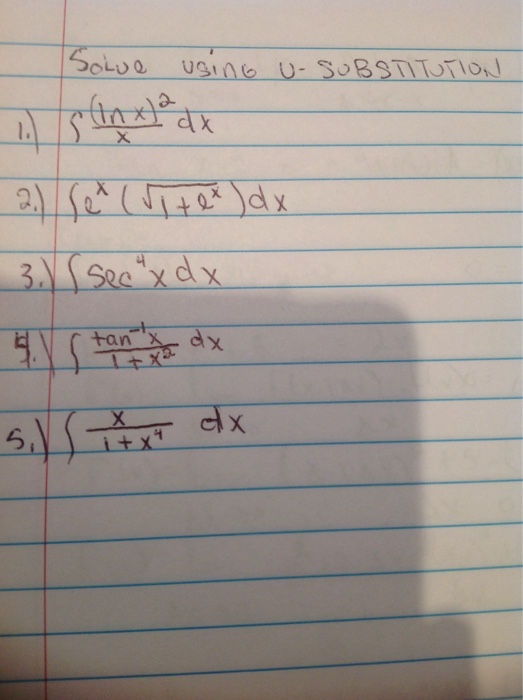 Solve using U-SUBSTITUTION
1.) ∫ (ln x)² / x dx
2.) ∫ eˣ (√1+eˣ) dx
3.) ∫ sec⁴ x dx
4.) ∫ tan⁻¹x / 1+x² dx
5.) ∫ x / 1+x⁴ dx